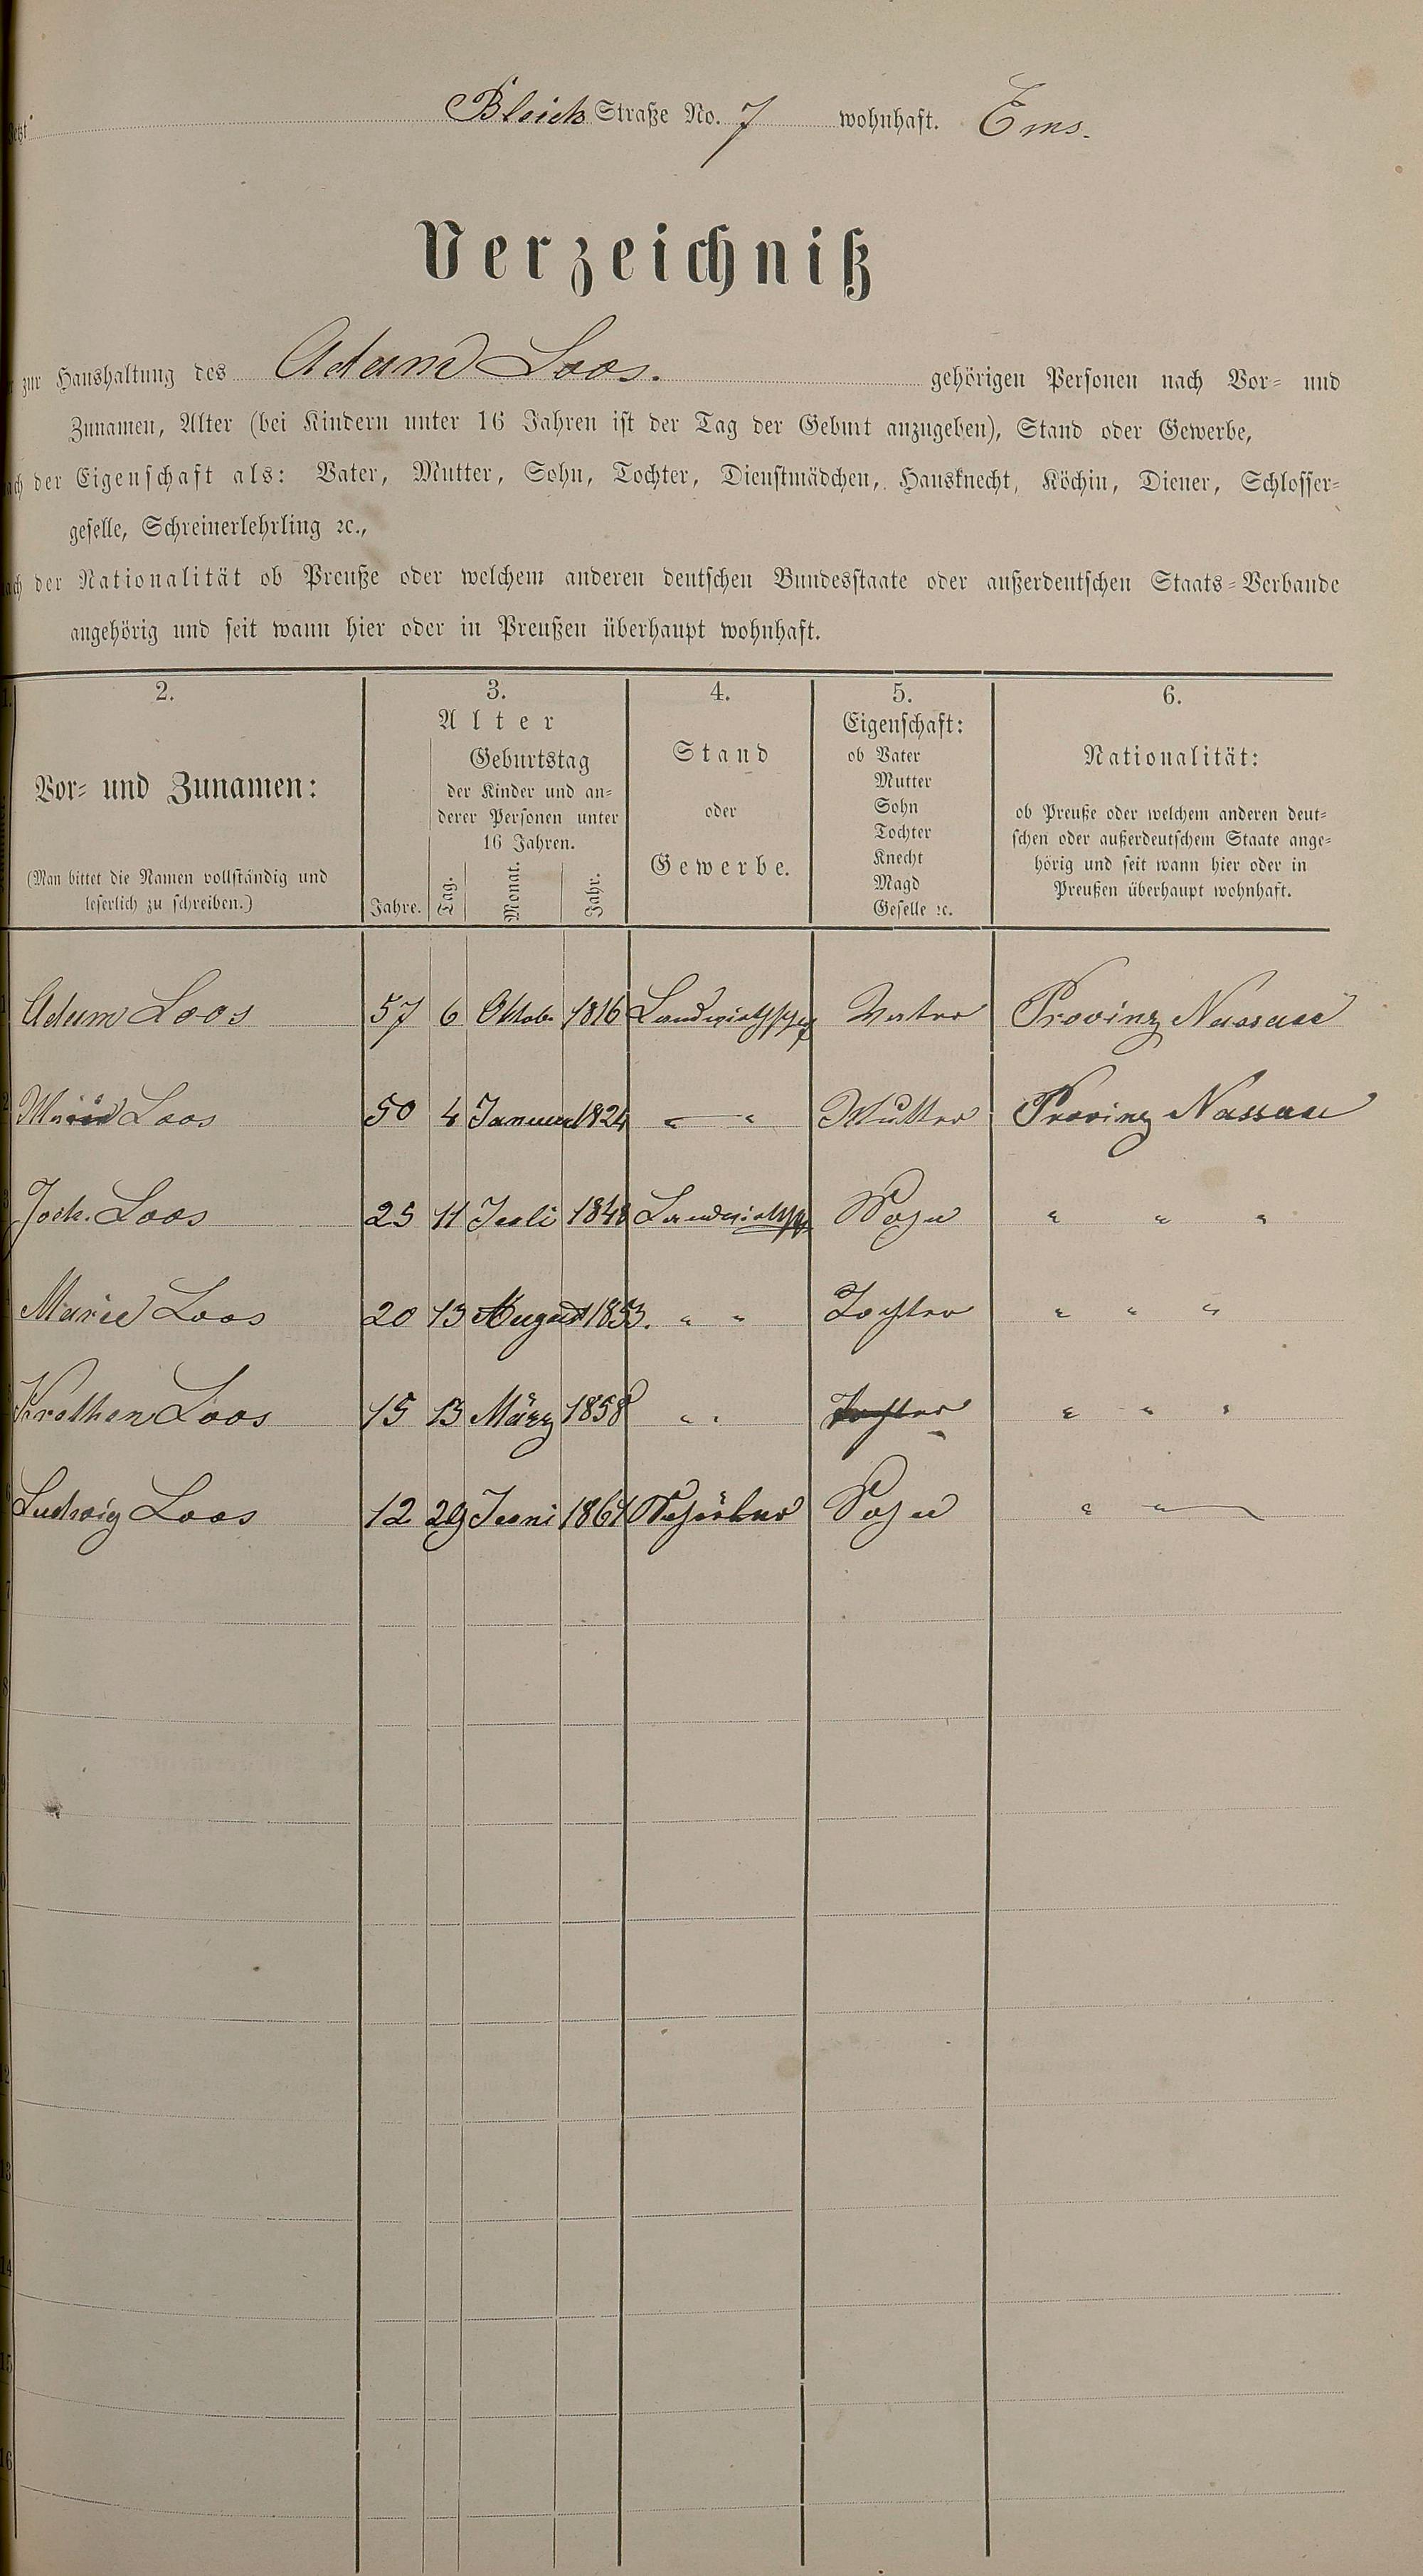 Bleich Straße No. 7 wohnhaft. Ems.
Verzeichniß
zur Haushaltung des Adam Loos. gehörigen Personen nach Vor- und
Zunamen, Alter (bei Kindern unter 16 Jahren ist der Tag der Geburt anzugeben), Stand oder Gewerbe,
der Eigenschaft als: Vater, Mutter, Sohn, Tochter, Dienstmädchen, Hausknecht, Köchin, Diener, Schlosser-
geselle, Schreinerlehrling ꝛc.,
der Nationalität ob Preuße oder welchem anderen deutschen Bundesstaate oder außerdeutschen Staats-Verbande
angehörig und seit wann hier oder in Preußen überhaupt wohnhaft.
1. 2. 3. 4. 5. 6.
Vor- und Zunamen:
(Man bittet die Namen vollständig und
leserlich zu schreiben.)
Alter
Geburtstag
der Kinder und an-
derer Personen unter
16 Jahren.
Jahre. Tag. Monat. Jahr.
Stand
oder
Gewerbe.
Eigenschaft:
ob Vater
Mutter
Sohn
Tochter
Knecht
Magd
Geselle ꝛc.
Nationalität:
ob Preuße oder welchem anderen deut-
schen oder außerdeutschem Staate ange-
hörig und seit wann hier oder in
Preußen überhaupt wohnhaft.
Adam Loos 57 6 Oktob 1816 Vater Provinz Nassau
Loos 50 4 Januar 1824 " " Mutter Provinz Nassau
Joh. Loos 25 11 Juli 1848 Sohn " " "
Marie Loos 20 13 August 1853. " " Tochter " " "
Loos 15 13 März 1858 " " Tochter " " "
Ludwig Loos 12 29 Juni 1861 Schüler Sohn " "
7
8
9
14
15
16